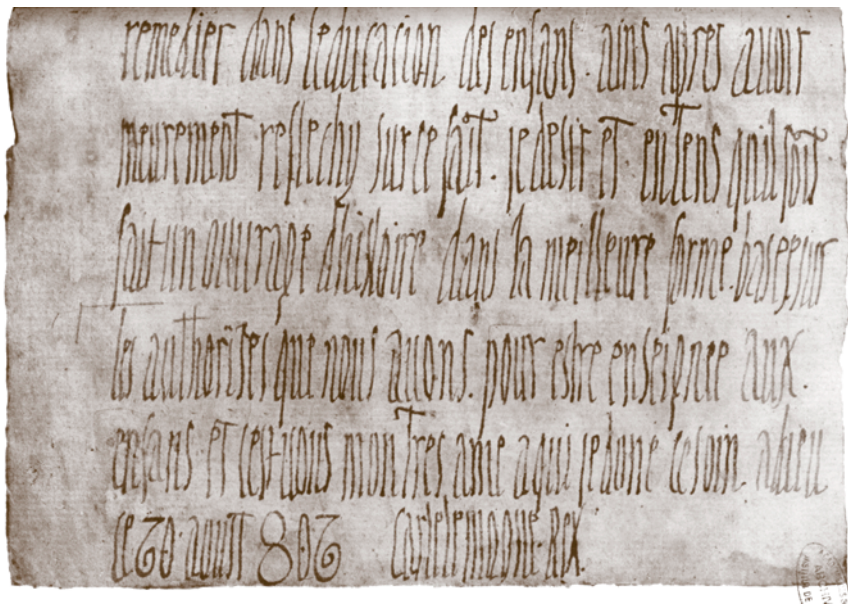 remedier dans leducacion des enfans . ains apres auoir
meurement reflechy sur ce fait . je desir et entens quil soit
fait un ouurage dhistoire dans la meilleure forme . basee sur
les authorites que nous auons . pour estre enseignee aux .
enfans et cest uous mon tres ame a qui je done ce soin adieu
ce 20 aoust 802 Carlelemagne . Rex